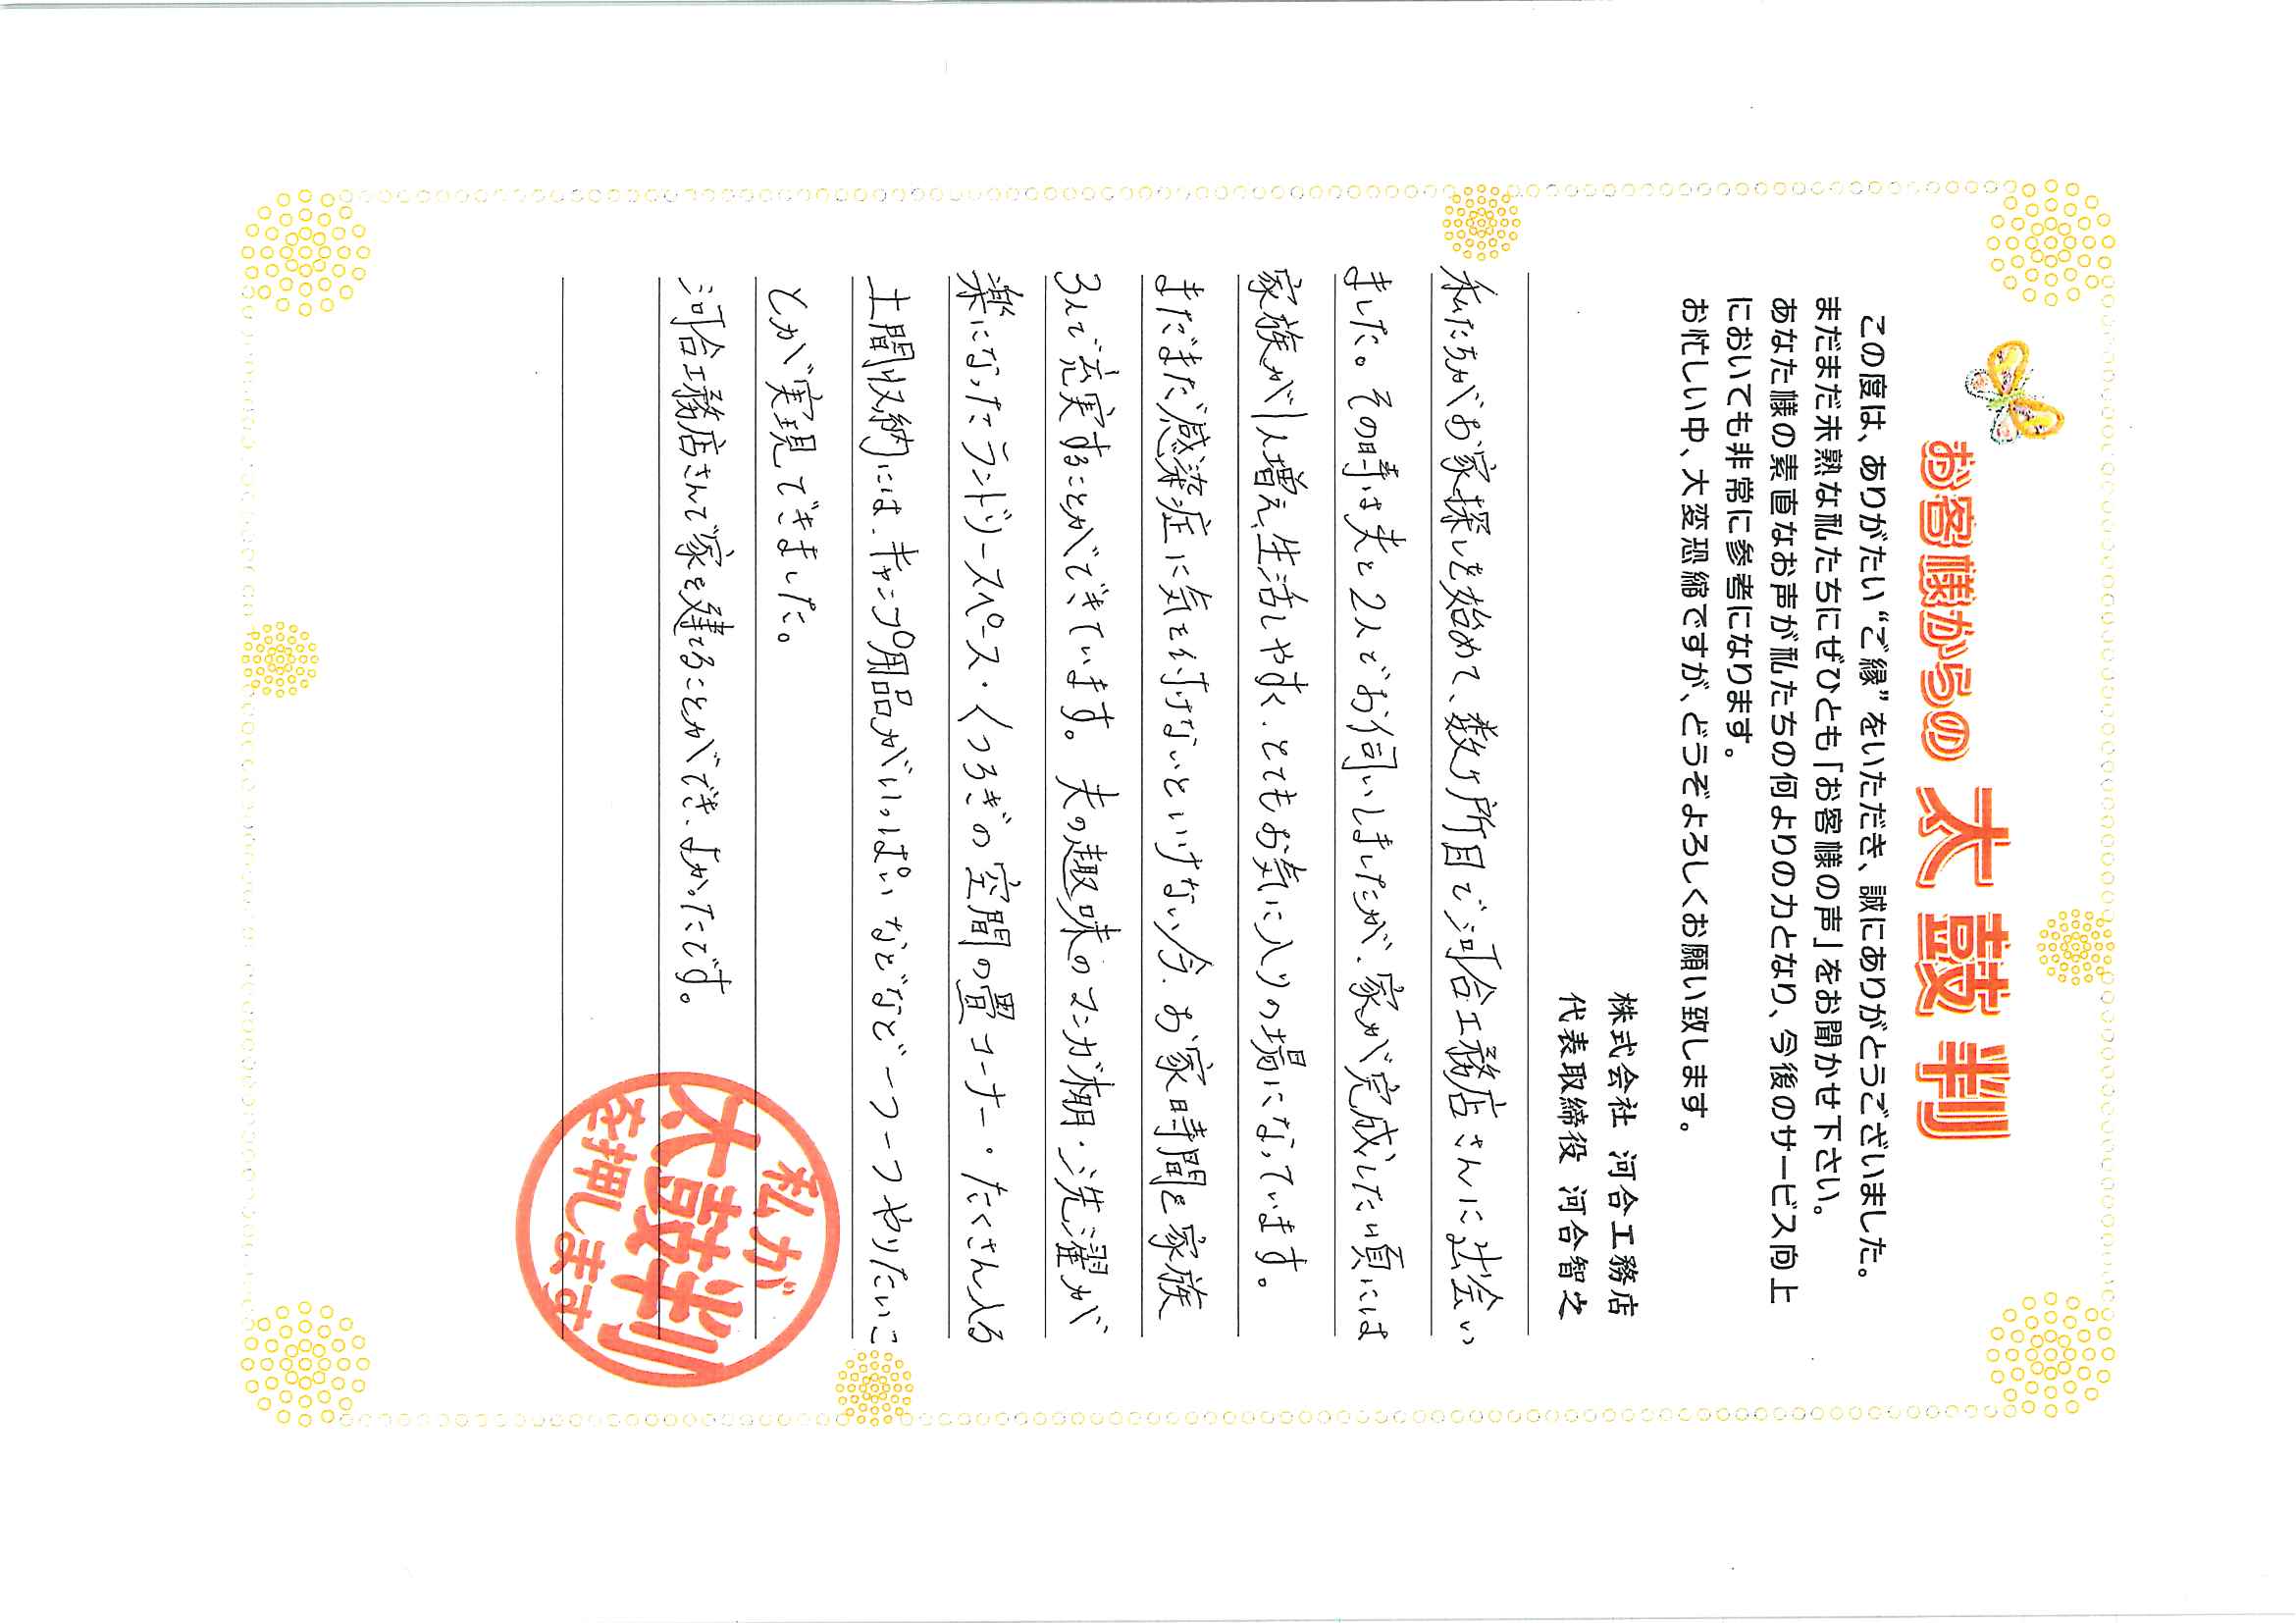 お客様からの 太鼓判
この度は、ありがたい“ご縁”をいただき、誠にありがとうございました。
まだまだ未熟な私たちにぜひとも「お客様の声」をお聞かせ下さい。
あなた様の素直なお声が私たちの何よりの力となり、今後のサービス向上
においても非常に参考になります。
お忙しい中、大変恐縮ですが、どうぞよろしくお願い致します。
株式会社 河合工務店
代表取締役 河合智之
私たちがお家探しを始めて、数ヶ所目で河合工務店さんに出会い
ました。その時は夫と2人でお伺いしましたが、家が完成した頃には
家族が1人増え、生活しやすく、とてもお気に入りの場になっています。
まだまだ感染症に気を付けないといけない今、お家時間を家族
3人で充実することができています。夫の趣味のマンガ棚・洗濯が
楽になったランドリースペース・くつろぎの空間の畳コーナー・たくさん入る
土間収納には、キャンプ用品がいっぱい などなど 一つ一つやりたいこ
とが実現できました。
河合工務店さんで家を建てることができ、よかったです。
私が
太鼓判
を押します